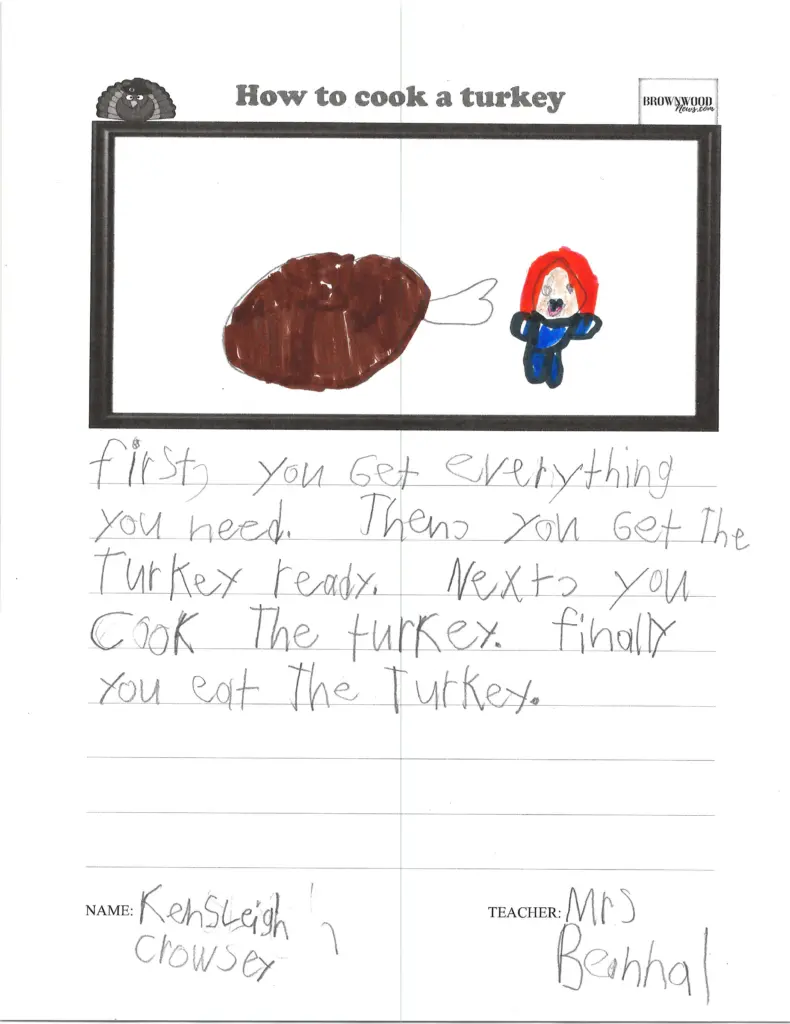 How to cook a turkey
BROWNWOOD
News.com
first, you Get everything
you need. Then, you Get The
Turkey ready. Next, you
Cook The turkey. finally
you eat The Turkey.
NAME: Kensleigh
Crowsey
TEACHER: Mrs